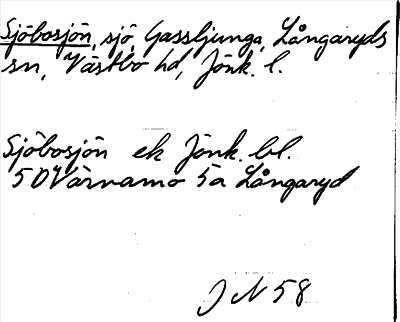 Sjöbosjön, sjö, Gassljunga, Långaryds
sn, Västbo hd, Jönk. l.
Sjöbosjön ek Jönk. bl.
5D Värnamo 5a Långaryd
J N 58